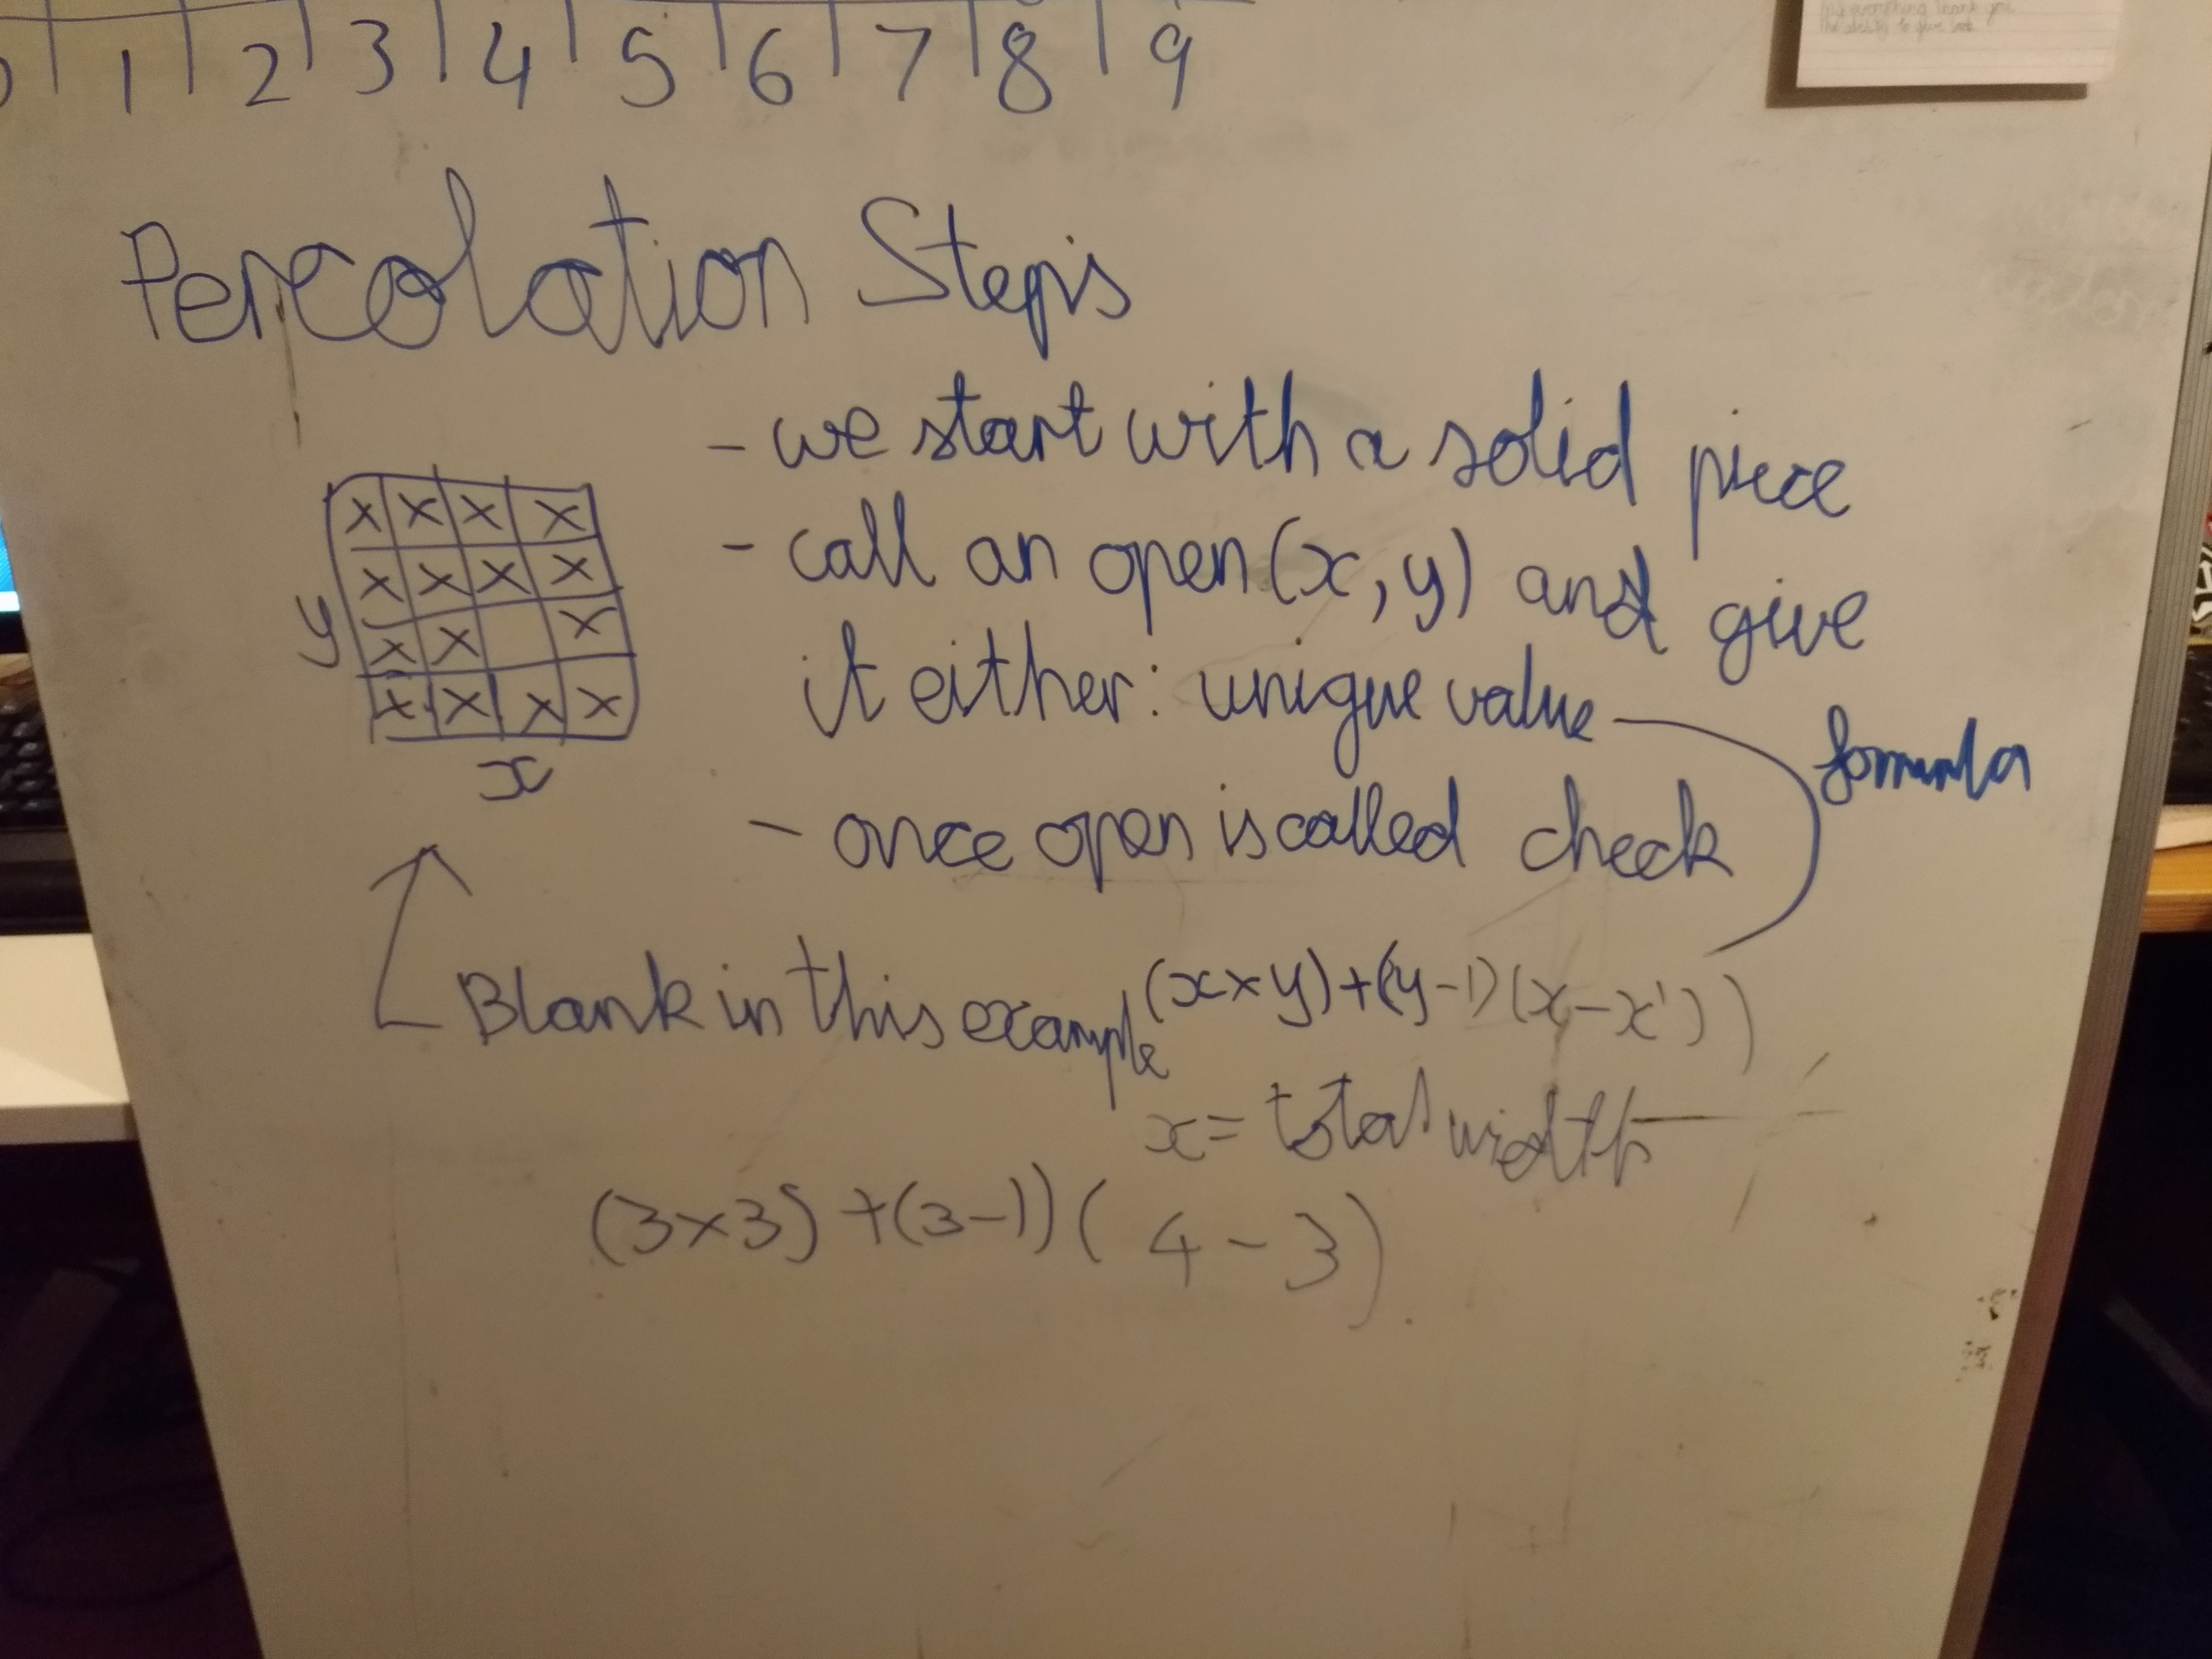 1 2 3 4 5 6 7 8 9
Percolation Steps
- we start with a solid piece
- call an open(x,y) and give
it either: unique value
formula
- once open is called check
x x x x
x x x x
y x x x
x x x x
x
Blank in this example
(x×y)+(y-1)(x-x'))
x = total width
(3×3)+(3-1))(4-3)